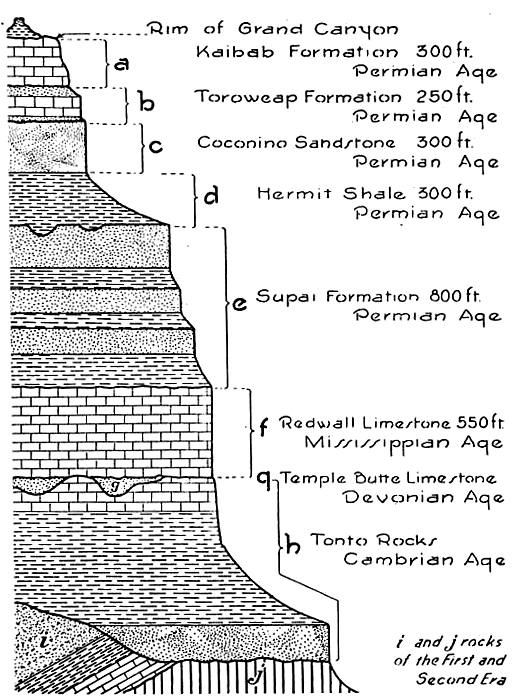 Rim of Grand Canyon
a
Kaibab Formation 300 ft.
Permian Age
b
Toroweap Formation 250 ft.
Permian Age
c
Coconino Sandstone 300 ft.
Permian Age
d
Hermit Shale 300 ft.
Permian Age
e
Supai Formation 800 ft.
Permian Age
f
Redwall Limestone 550 ft
Mississippian Age
g
g
Temple Butte Limestone
Devonian Age
h
Tonto Rocks
Cambrian Age
i
j
i and j rocks
of the First and
Second Era